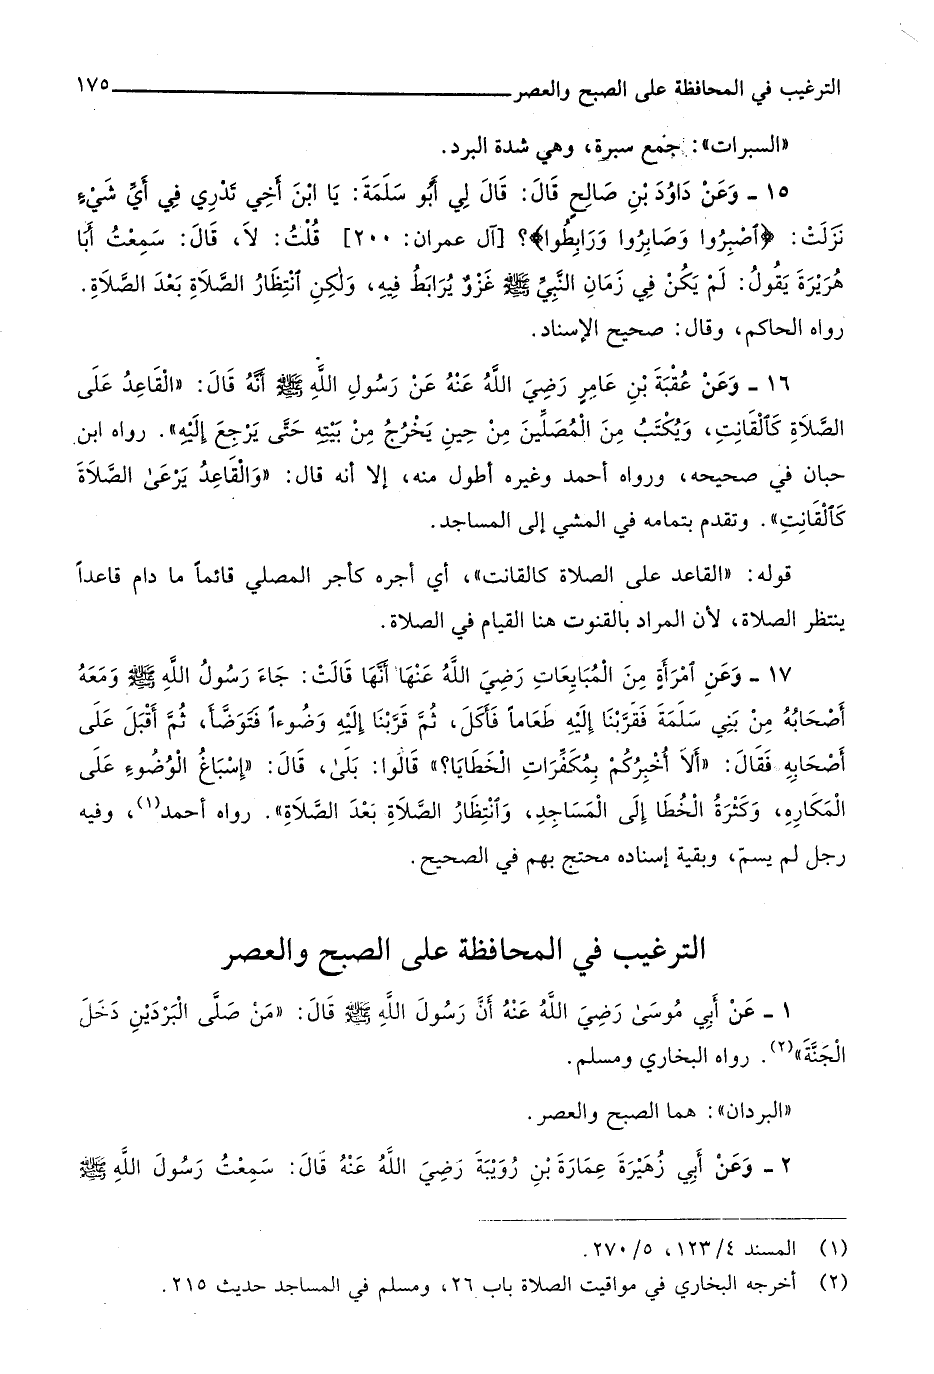 الترغيب في المحافظة على الصبح والعصر ١٧٥
«السبرات»: جَمع سبرة، وهي شدة البرد.
١٥ ـ وَعَنْ دَاوُدَ بْنِ صَالِحٍ قَالَ: قَالَ لِي أَبُو سَلَمَةَ: يَا ابْنَ أَخِي تَدْرِي فِي أَيِّ شَيْءٍ
نَزَلَتْ: ﴿ٱصْبِرُوا وَصَابِرُوا وَرَابِطُوا﴾؟ [آل عمران: ٢٠٠] قُلْتُ: لاَ، قَالَ: سَمِعْتُ أَبَا
هُرَيْرَةَ يَقُولُ: لَمْ يَكُنْ فِي زَمَانِ النَّبِيِّ ﷺ غَزْوٌ يُرَابَطُ فِيهِ، وَلٰكِنِ ٱنْتِظَارُ الصَّلاَةِ بَعْدَ الصَّلاَةِ.
رواه الحاكم، وقال: صحيح الإسناد.
١٦ ـ وَعَنْ عُقْبَةَ بْنِ عَامِرٍ رَضِيَ اللَّهُ عَنْهُ عَنْ رَسُولِ اللَّهِ ﷺ أَنَّهُ قَالَ: «الْقَاعِدُ عَلَى
الصَّلاَةِ كَٱلْقَانِتِ، وَيُكْتَبُ مِنَ الْمُصَلِّينَ مِنْ حِينِ يَخْرُجُ مِنْ بَيْتِهِ حَتَّى يَرْجِعَ إِلَيْهِ». رواه ابن
حبان في صحيحه، ورواه أحمد وغيره أطول منه، إلا أنه قال: «وَالْقَاعِدُ يَرْعَىٰ الصَّلاَةَ
كَٱلْقَانِتِ». وتقدم بتمامه في المشي إلى المساجد.
قوله: «القاعد على الصلاة كالقانت»، أي أجره كأجر المصلي قائماً ما دام قاعداً
ينتظر الصلاة، لأن المراد بالقنوت هنا القيام في الصلاة.
١٧ ـ وَعَنِ ٱمْرَأَةٍ مِنَ الْمُبَايِعَاتِ رَضِيَ اللَّهُ عَنْهَا أَنَّهَا قَالَتْ: جَاءَ رَسُولُ اللَّهِ ﷺ وَمَعَهُ
أَصْحَابُهُ مِنْ بَنِي سَلَمَةَ فَقَرَّبْنَا إِلَيْهِ طَعَاماً فَأَكَلَ، ثُمَّ قَرَّبْنَا إِلَيْهِ وَضُوءاً فَتَوَضَّأَ، ثُمَّ أَقْبَلَ عَلَى
أَصْحَابِهِ فَقَالَ: «أَلاَ أُخْبِرُكُمْ بِمُكَفِّرَاتِ الْخَطَايَا؟» قَالُوا: بَلَىٰ، قَالَ: «إِسْبَاغُ الْوُضُوءِ عَلَى
الْمَكَارِهِ، وَكَثْرَةُ الْخُطَا إِلَى الْمَسَاجِدِ، وَٱنْتِظَارُ الصَّلاَةِ بَعْدَ الصَّلاَةِ». رواه أحمد(١)، وفيه
رجل لم يسمّ، وبقية إسناده محتج بهم في الصحيح.
الترغيب في المحافظة على الصبح والعصر
١ ـ عَنْ أَبِي مُوسَىٰ رَضِيَ اللَّهُ عَنْهُ أَنَّ رَسُولَ اللَّهِ ﷺ قَالَ: «مَنْ صَلَّى الْبَرْدَيْنِ دَخَلَ
الْجَنَّةَ»(٢). رواه البخاري ومسلم.
«البردان»: هما الصبح والعصر.
٢ ـ وَعَنْ أَبِي زُهَيْرَةَ عِمَارَةَ بْنِ رُوَيْبَةَ رَضِيَ اللَّهُ عَنْهُ قَالَ: سَمِعْتُ رَسُولَ اللَّهِ ﷺ
(١) المسند ٤/ ١٢٣، ٥/ ٢٧٠.
(٢) أخرجه البخاري في مواقيت الصلاة باب ٢٦، ومسلم في المساجد حديث ٢١٥.